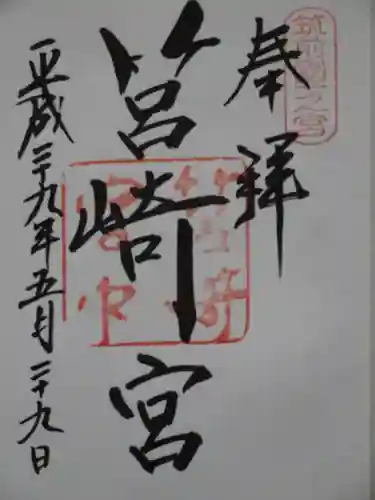 筑前國一之宮
奉拝
筥崎宮
平成二十九年五月二十九日